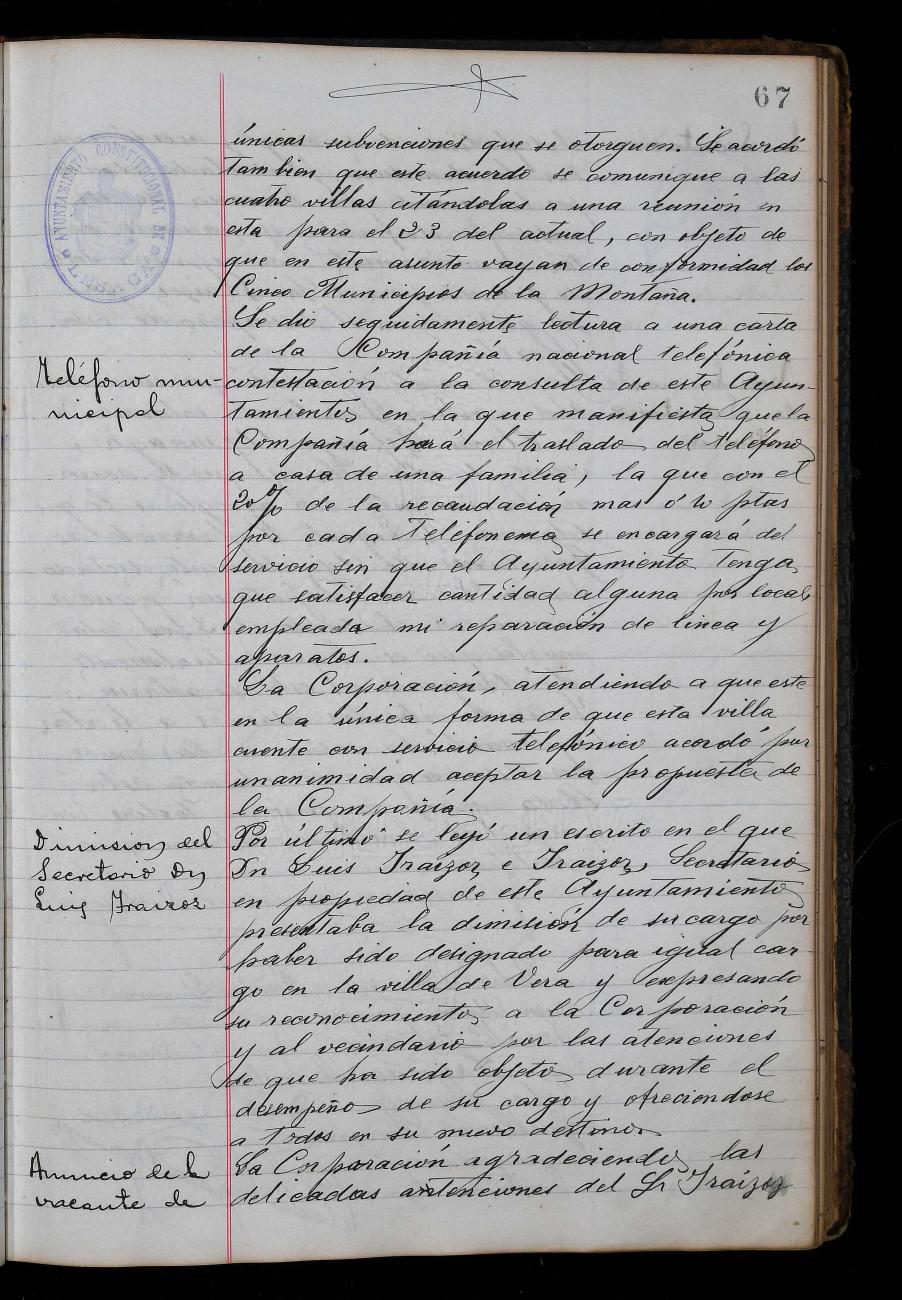 67
AYUNTAMIENTO CONSTITUCIONAL DE
LESACA
únicas subvenciones que se otorguen. Se acordó
tambien que este acuerdo se comunique a las
cuatro villas citándolas a una reunión en
esta para el 23 del actual, con objeto de
que en este asunto vayan de conformidad los
Cinco Municipios de la Montaña.
Se dio seguidamente lectura a una carta
de la Compañía nacional telefónica
Teléfono mu-
nicipal
contestación a la consulta de este Ayun-
tamiento, en la que manifiesta que la
Compañía hará el traslado del teléfono
a casa de una familia, la que con el
20% de la recaudación mas ó'10 ptas
por cada Telefonema se encargará del
servicio sin que el Ayuntamiento tenga
que satisfacer cantidad alguna por local
empleada ni reparación de linea y
aparatos.
La Corporación, atendiendo a que este
en la única forma de que esta villa
cuente con servicio telefónico acordó por
unanimidad aceptar la propuesta de
la Compañía.
Dimision del
Secretario Dn
Luis Traizoz
Por último se leyó un escrito en el que
Dn Luis Iraizoz e Iraizoz, Secretario
en propiedad de este Ayuntamiento
presentaba la dimisión de su cargo por
haber sido designado para igual car-
go en la villa de Vera y expresando
su reconocimiento a la Corporación
y al vecindario por las atenciones
de que ha sido objeto durante el
desempeño de su cargo y ofreciendose
a todos en su nuevo destino.
Anuncio de la
vacante de
La Corporación agradeciendo las
delicadas atenciones del Sr Iraizoz